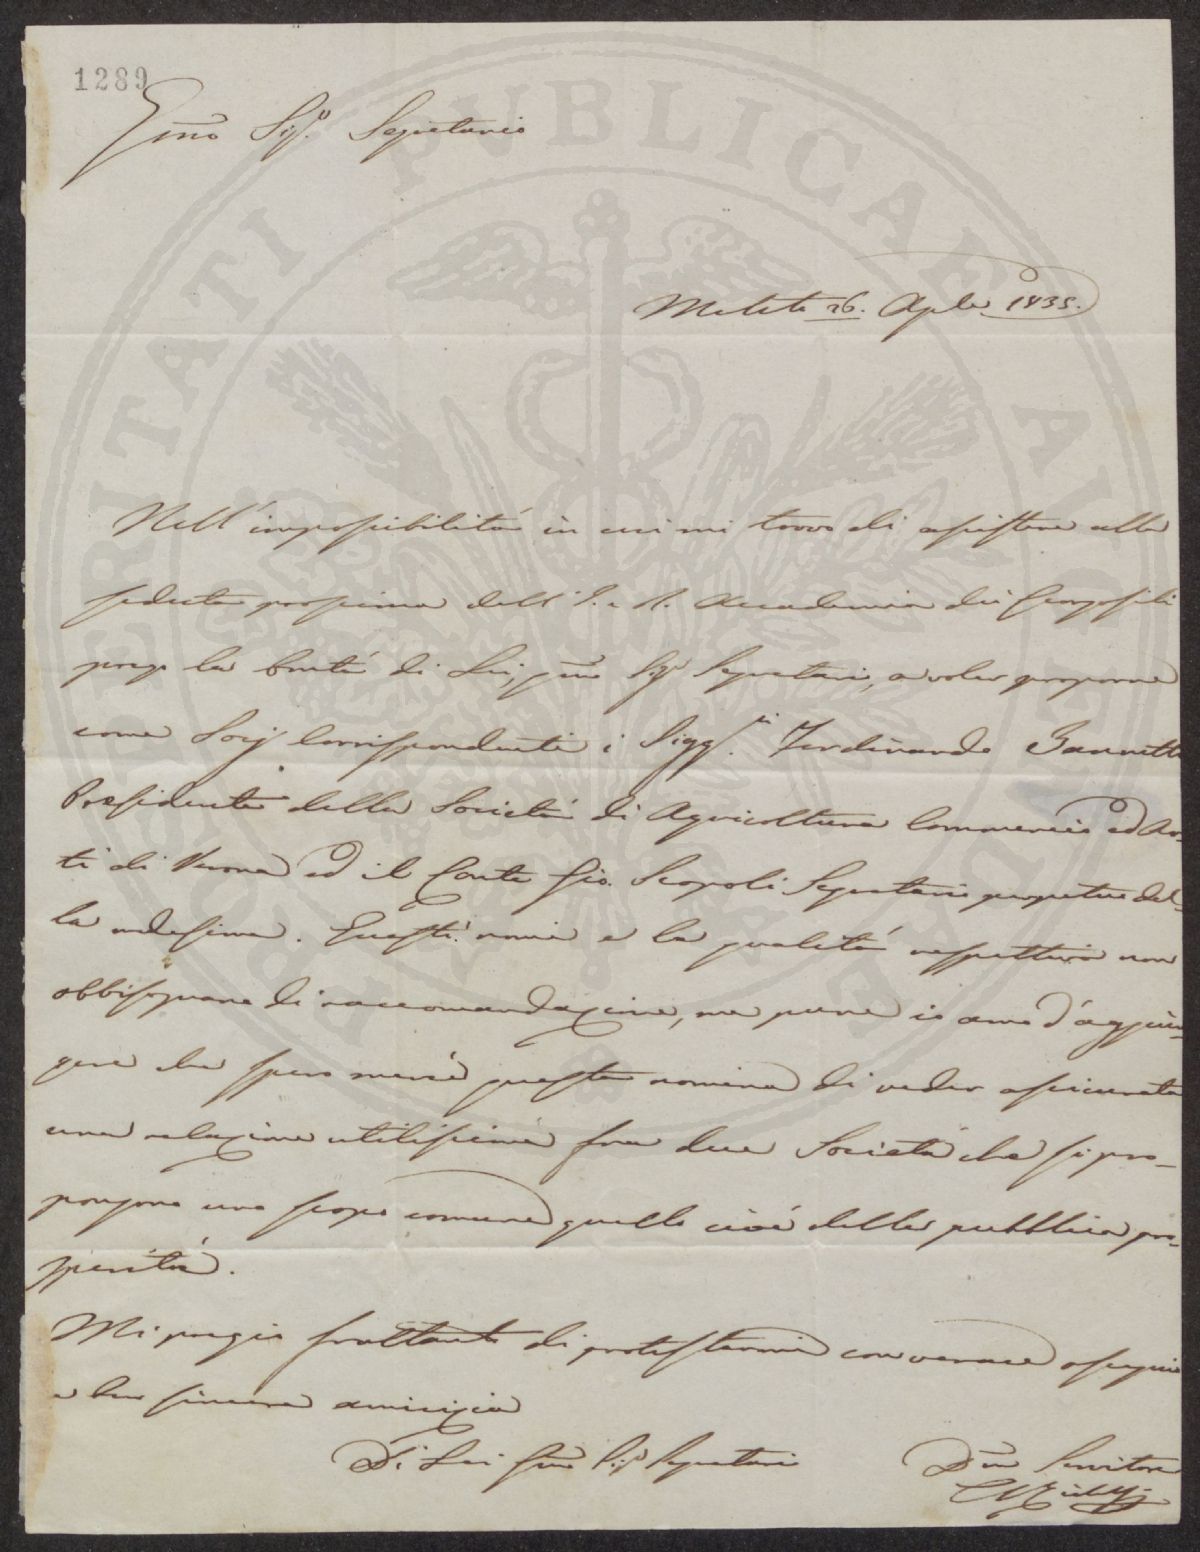 1289
Sig.r Segretario
Meleto 26. Aple 1835.
Nell'impossibilità in cui mi trovo di assistere alla
seduta prossima dell'I. e R. Accademia dei Georgofili
prego la bontà di Lei, Sig.r Segretario, a voler proporre
come Socj Corrispondenti i Sigg.ri Ferdinando Zannetti
Presidente della Società di Agricoltura Commercio ed Ar-
ti di Verona ed il Conte Gio. Scopoli Segretario perpetuo del-
la medesima. Questi nomi e la qualità respettiva non
abbisognano di raccomandazione, ma pure io amo d'aggiun-
gere che spero mercè questa nomina di veder assicurata
una relazione utilissima fra due Società che si pro-
pongono uno scopo comune quello cioè della pubblica pro-
sperità.
Mi pregio frattanto di protestarmi con verace ossequio
e ben sincera amicizia
Di Lei Sig.r Segretario
Servitore
PROSPERITATI PVBLICAE AVGENDAE